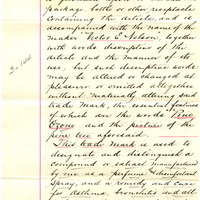 package bottle or other receptacle
containing the article, and is
accompanied with the name of the
maker Victor E. Nelson, together
with words descriptive of the
article and the manner of its
use, but such descriptive words
may be altered or changed at
pleasure or omitted altogether
without materially altering such
trade mark, the essential features
of which are the words
Ozone and the picture of the
pine tree aforesaid.
This trade mark is used to
designate and distinguish a
compound or extract manufactured
by me as a perfume & disinfectant
Spray, and a remedy and cure
for asthma, bronchitis and all